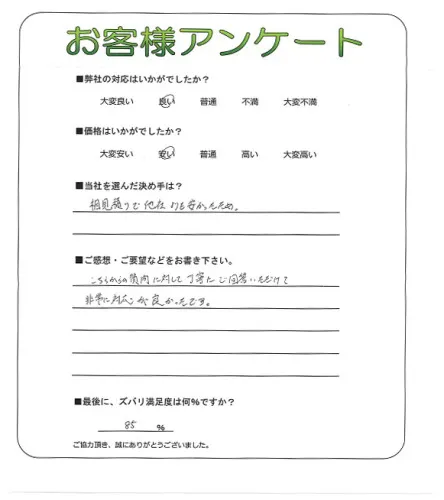 お客様アンケート
■弊社の対応はいかがでしたか？
大変良い 良い 普通 不満 大変不満
■価格はいかがでしたか？
大変安い 安い 普通 高い 大変高い
■当社を選んだ決め手は？
相見積りで他社よりも安かったため。
■ご感想・ご要望などをお書き下さい。
こちらからの質問に対して丁寧にご回答いただけて
非常に対応が良かったです。
■最後に、ズバリ満足度は何％ですか？
85 ％
ご協力頂き、誠にありがとうございました。